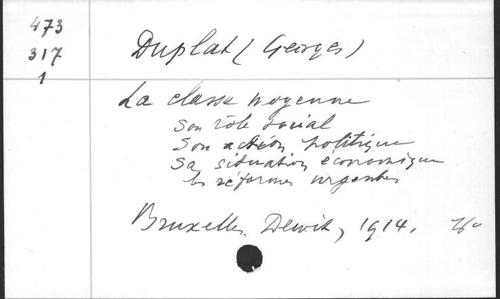 473
317
1
Duplat (Georges)
La classe moyenne
Son rôle social
Son action politique
Sa situation économique
les réformes urgentes
Bruxelles, Dewit, 1914.